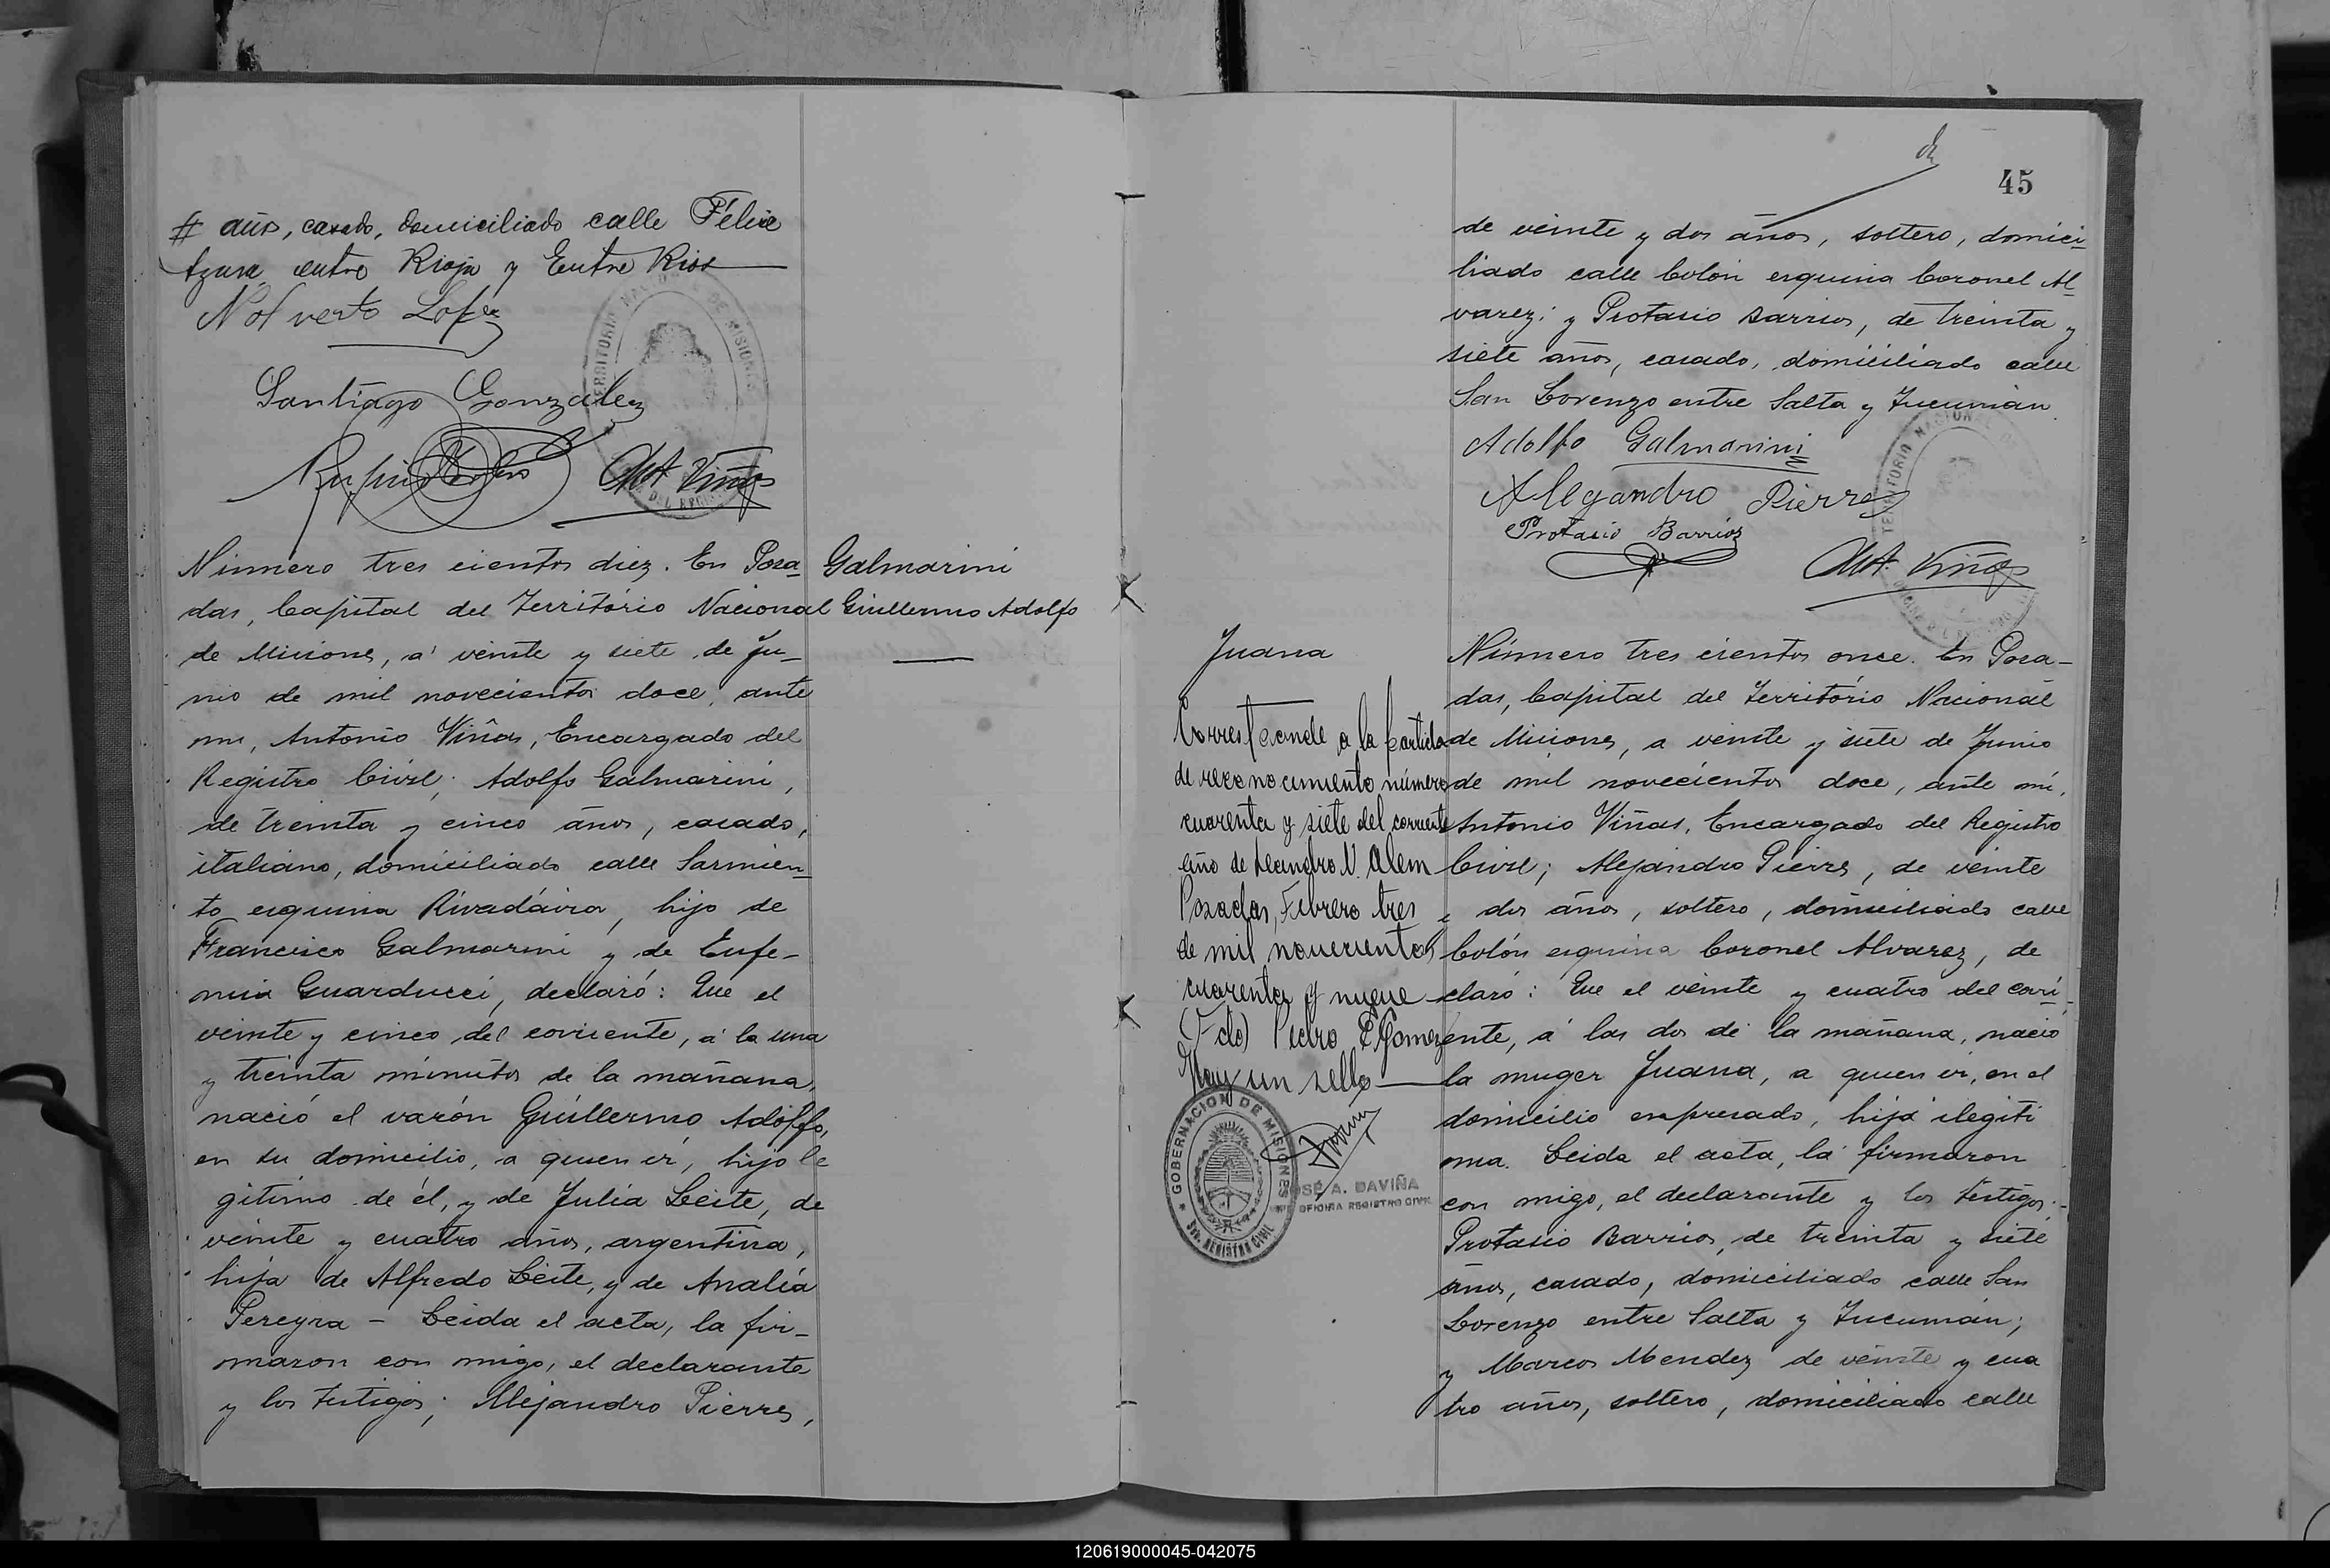 # años, casado, domiciliado calle Félix
Azara entre Rioja y Entre Rios
Nolverto Lopez
Santiago Gonzalez
Ant Viñas
Número tres cientos diez. En Posa-
das, Capital del Território Nacional
de Misiones, á veinte y siete de Ju-
nio de mil novecientos doce, ante
mi, Antonio Viñas, Encargado del
Registro Civil; Adolfo Galmarini,
de treinta y cinco años, casado,
italiano, domiciliado calle Sarmien-
to esquina Rivadávia, hijo de
Francisco Galmarini y de Eufe-
mia Guarducci, declaró: Que el
veinte y cinco del corriente, á la una
y treinta minutos de la mañana,
nació el varón Guillermo Adolfo,
en su domicilio, a quien ví, hijo le
gitimo de él, y de Julia Leite, de
veinte y cuatro años, argentina,
hija de Alfredo Leite, y de Analía
Pereyra - Leida el acta, la fir-
maron con migo, el declarante
y los testigos; Alejandro Pierres,
Galmarini
Guillermo Adolfo
45
de veinte y dos años, soltero, domici-
liado calle Colón esquina Coronel Al-
varez; y Protasio Barrios, de treinta y
siete años, casado, domiciliado calle
San Lorenzo entre Salta y Tucumán
Adolfo Galmarini
Alegandro Pierres
Protasio Barrios
Ant Viñas
Juana
Corresponde a la partida
de reconocimiento número
cuarenta y siete del corriente
año de Leandro N. Alem
Posadas, Febrero tres
de mil novecientos
cuarenta y nueve
(Fdo) Pedro E Gomez
Hay un sello
GOBERNACION DE MISIONES
REGISTRO CIVIL
JOSÉ A. DAVIÑA
OFICINA REGISTRO CIVIL
Número tres cientos once. En Posa-
das, Capital del Território Nacional
de Misiones, a veinte y siete de Junio
de mil novecientos doce, ante mi,
Antonio Viñas, Encargado del Registro
Civil; Alejandro Pierres, de veinte
y dos años, soltero, domiciliado calle
Colón esquina Coronel Alvarez, de
claró: Que el veinte y cuatro del corri-
ente, á las dos de la mañana, nació
la muger Juana, a quien ví, en el
domicilio expresado, hija ilegiti
ma. Leida el acta, la firmaron
con migo, el declarante y los testigos
Protasio Barrios, de treinta y siete
años, casado, domiciliado calle San
Lorenzo entre Salta y Tucumán;
y Marcos Mendez de veinte y cua
tro años, soltero, domiciliado calle
120619000045-042075